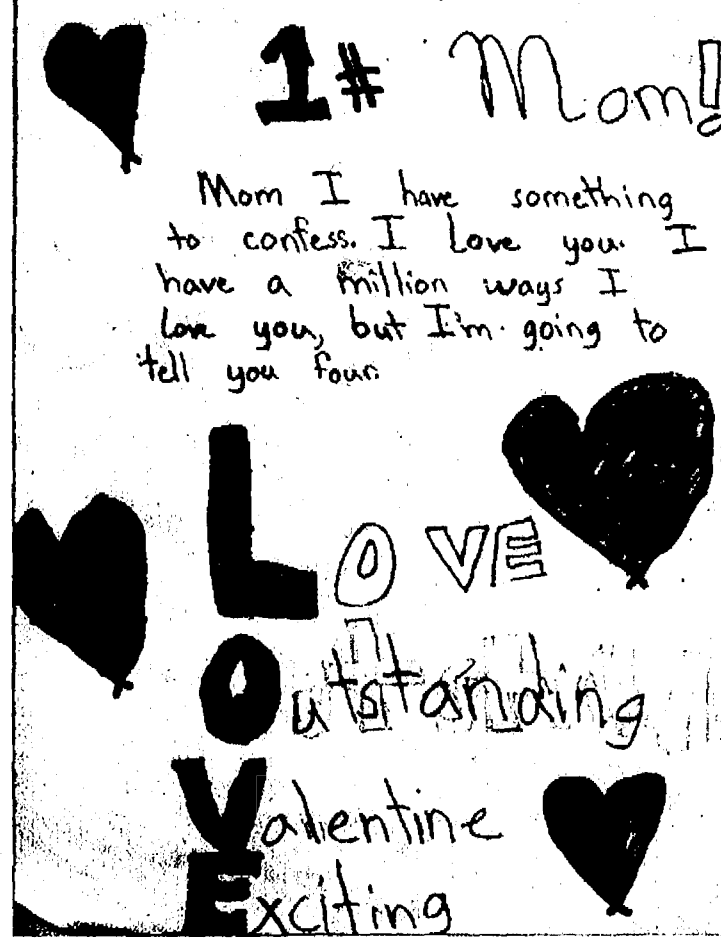 1# Mom!
Mom I have something
to confess. I Love you. I
have a million ways I
Love you, but I'm going to
tell you four.
LOVE
Outstanding
Valentine
Exciting